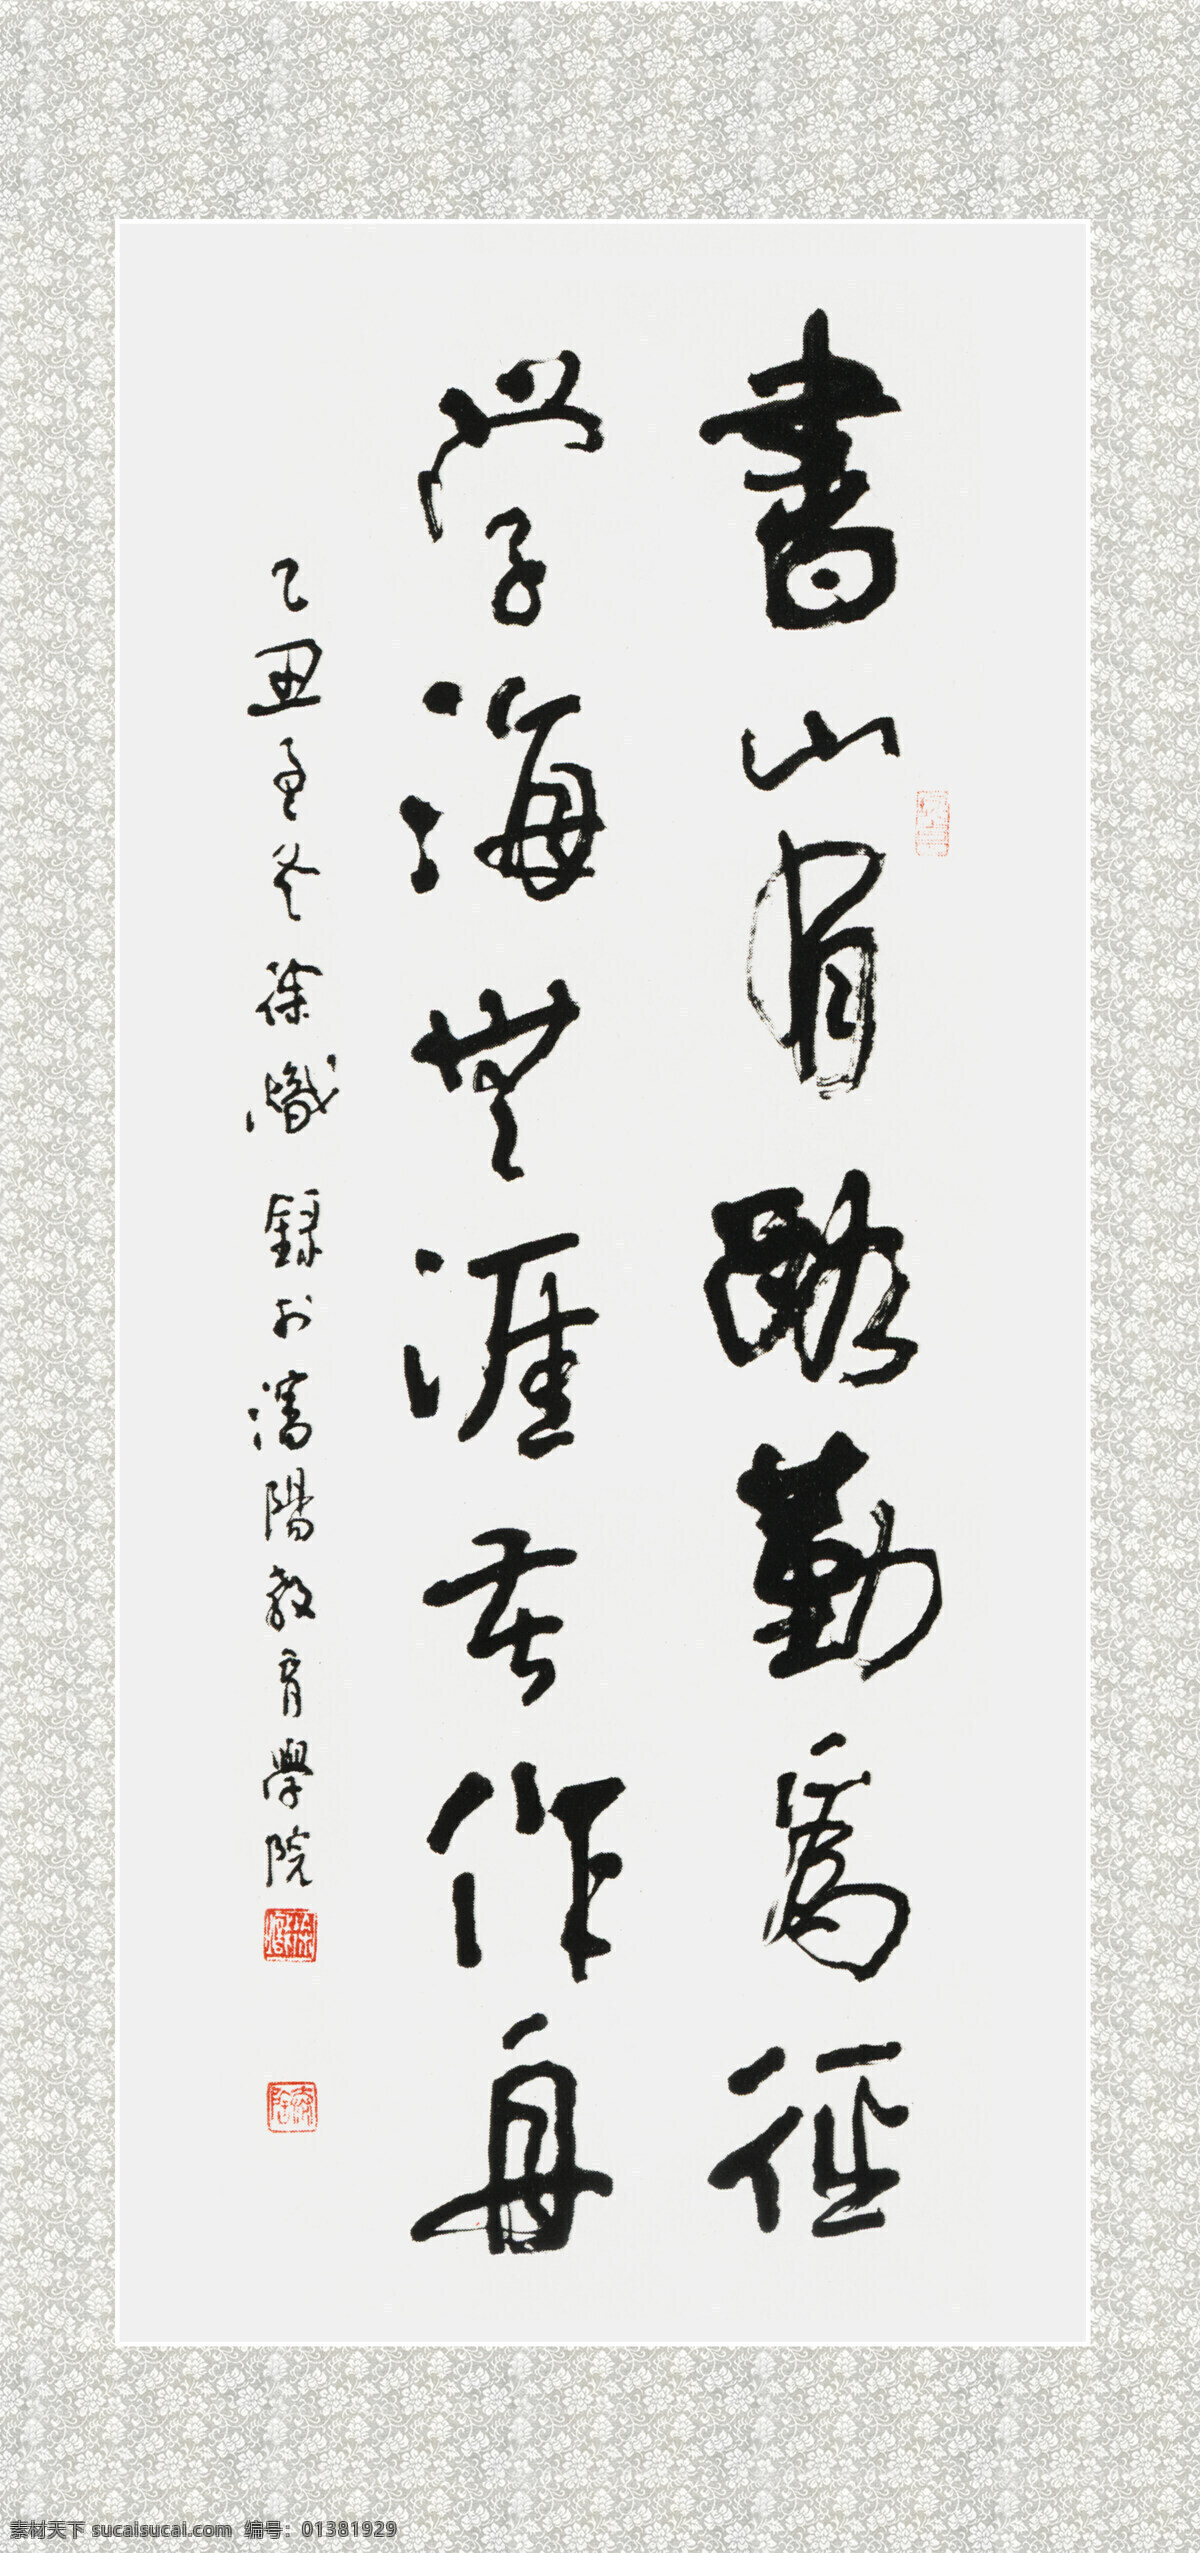 書山有路勤爲徑
学海無涯苦作舟
乙丑孟冬徐熾錄於瀋陽教育學院
素材天下 sucaisucai.com 编号：01381929